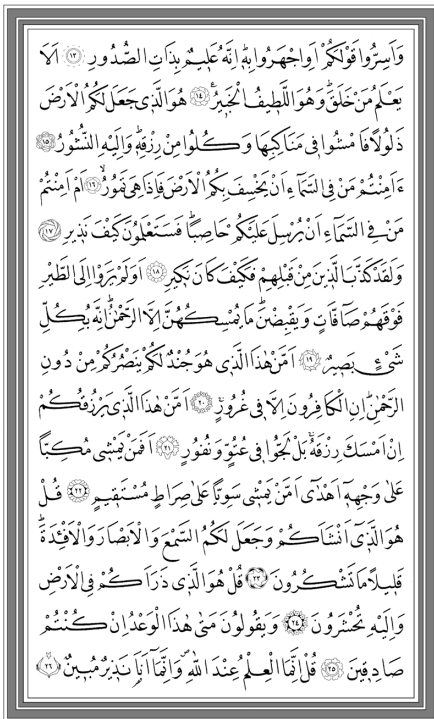 وَاَسِرُّوا قَوْلَكُمْ اَوِ اجْهَرُوا بِهٖۜ اِنَّهُ عَلٖيمٌ بِذَاتِ الصُّدُورِ ﴿١٣﴾ اَلَا
يَعْلَمُ مَنْ خَلَقَۜ وَهُوَ اللَّطٖيفُ الْخَبٖيرُ۟ ﴿١٤﴾ هُوَ الَّذٖي جَعَلَ لَكُمُ الْاَرْضَ
ذَلُولًا فَامْشُوا فٖي مَنَاكِبِهَا وَكُلُوا مِنْ رِزْقِهٖۜ وَاِلَيْهِ النُّشُورُ ﴿١٥﴾
ءَاَمِنْتُمْ مَنْ فِي السَّمَٓاءِ اَنْ يَخْسِفَ بِكُمُ الْاَرْضَ فَاِذَا هِيَ تَمُورُۙ ﴿١٦﴾ اَمْ اَمِنْتُمْ
مَنْ فِي السَّمَٓاءِ اَنْ يُرْسِلَ عَلَيْكُمْ حَاصِبًاۜ فَسَتَعْلَمُونَ كَيْفَ نَذٖيرِ ﴿١٧﴾
وَلَقَدْ كَذَّبَ الَّذٖينَ مِنْ قَبْلِهِمْ فَكَيْفَ كَانَ نَكٖيرِ ﴿١٨﴾ اَوَلَمْ يَرَوْا اِلَى الطَّيْرِ
فَوْقَهُمْ صَٓافَّاتٍ وَيَقْبِضْنَۜ مَا يُمْسِكُهُنَّ اِلَّا الرَّحْمٰنُۜ اِنَّهُ بِكُلِّ
شَيْءٍ بَصٖيرٌ ﴿١٩﴾ اَمَّنْ هٰذَا الَّذٖي هُوَ جُنْدٌ لَكُمْ يَنْصُرُكُمْ مِنْ دُونِ
الرَّحْمٰنِۜ اِنِ الْكَافِرُونَ اِلَّا فٖي غُرُورٍۚ ﴿٢٠﴾ اَمَّنْ هٰذَا الَّذٖي يَرْزُقُكُمْ
اِنْ اَمْسَكَ رِزْقَهُۚ بَلْ لَجُّوا فٖي عُتُوٍّ وَنُفُورٍ ﴿٢١﴾ اَفَمَنْ يَمْشٖي مُكِبًّا
عَلٰى وَجْهِهٖٓ اَهْدٰٓى اَمَّنْ يَمْشٖي سَوِيًّا عَلٰى صِرَاطٍ مُسْتَقٖيمٍ ﴿٢٢﴾ قُلْ
هُوَ الَّذٖٓي اَنْشَاَكُمْ وَجَعَلَ لَكُمُ السَّمْعَ وَالْاَبْصَارَ وَالْاَفْـِٔدَةَۜ
قَلٖيلًا مَا تَشْكُرُونَ ﴿٢٣﴾ قُلْ هُوَ الَّذٖي ذَرَاَكُمْ فِي الْاَرْضِ
وَاِلَيْهِ تُحْشَرُونَ ﴿٢٤﴾ وَيَقُولُونَ مَتٰى هٰذَا الْوَعْدُ اِنْ كُنْتُمْ
صَادِقٖينَ ﴿٢٥﴾ قُلْ اِنَّمَا الْعِلْمُ عِنْدَ اللّٰهِۖ وَاِنَّمَٓا اَنَا۬ نَذٖيرٌ مُبٖينٌ ﴿٢٦﴾